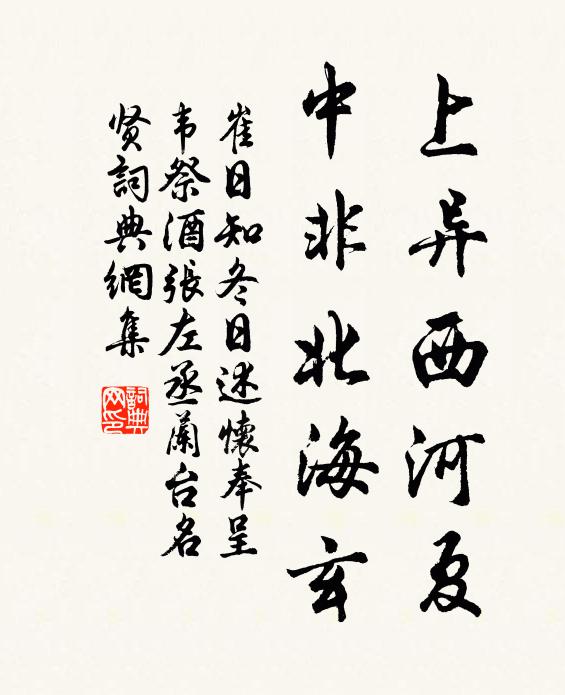 上异西河夏
中非北海玄
崔日知冬日述懷奉呈
韦祭酒張左丞蘭台名
贤詞典網集
詞典网印